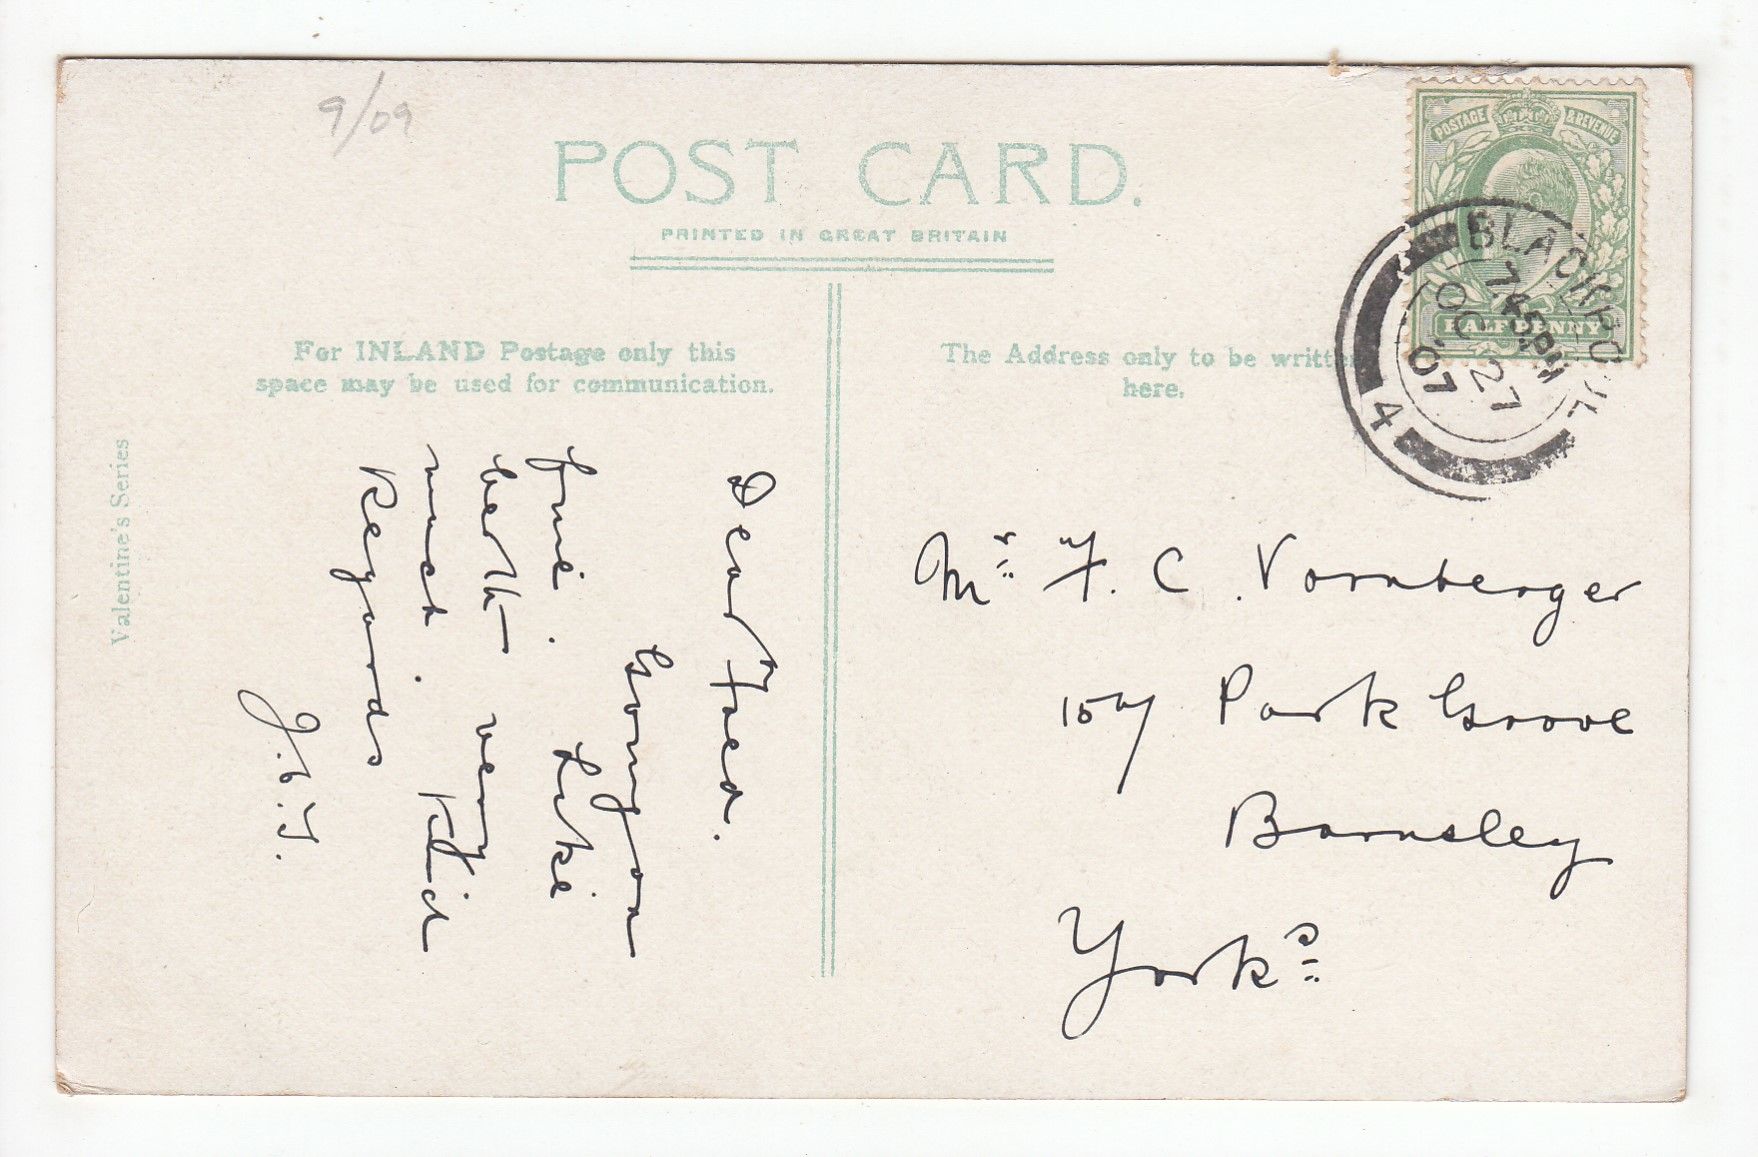 9/09
POST CARD.
PRINTED IN GREAT BRITAIN
For INLAND Postage only this
space may be used for communication.
The Address only to be written
here.
Valentine's Series
POSTAGE & REVENUE
HALFPENNY
BLACKPOOL
7.45PM
OC 27
07
4
Dear Fred.
Going on
fine. Like
berth very
much. Kind
Regards
J.
Mr F. C. Vornberger
157 Park Grove
Barnsley
Yorks